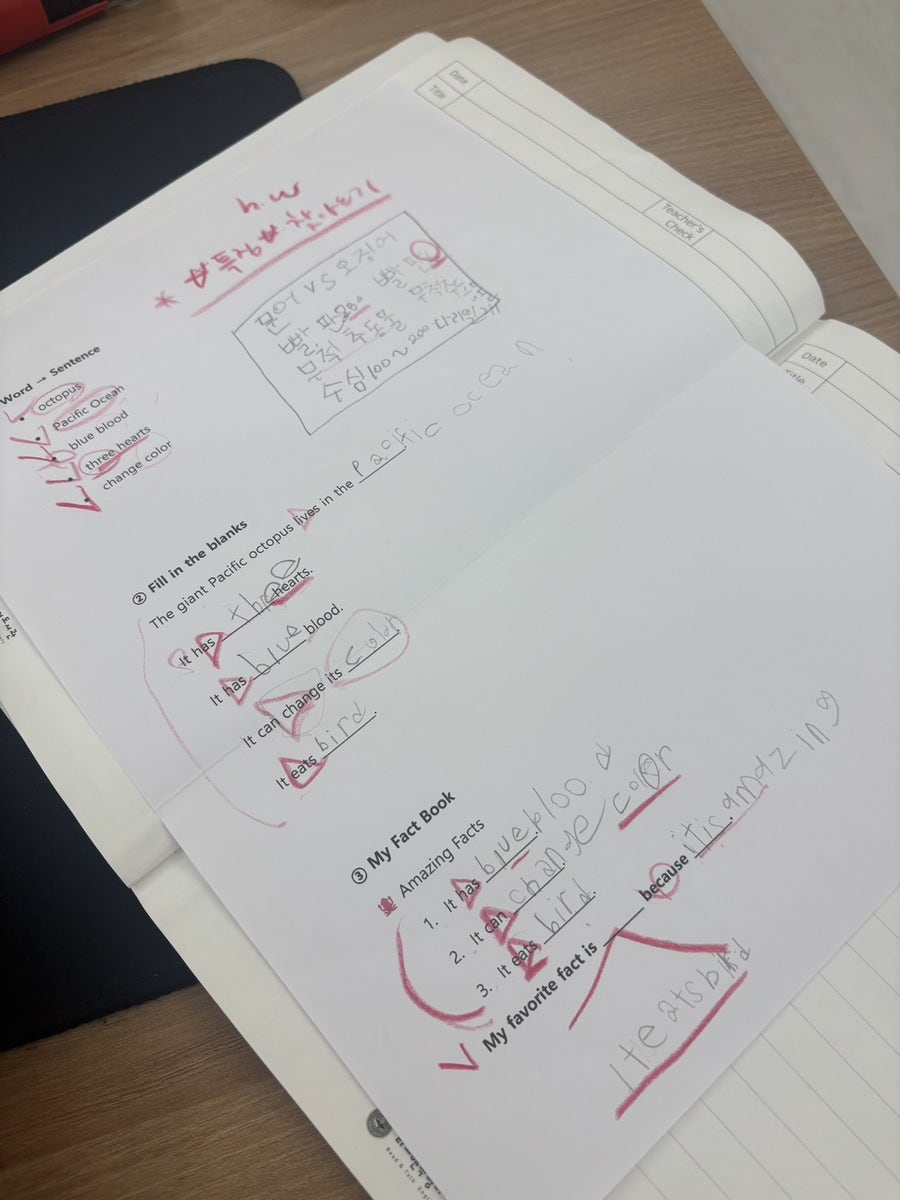 Date
Title
Teacher's
Check
Date
Title
h.w
문어 VS 오징어
빨판 200
무척추동물
수심 100~200
Word → Sentence
octopus
Pacific Ocean
blue blood
three hearts
change color
② Fill in the blanks
The giant Pacific octopus lives in the Pacific ocean
It has three hearts.
It has blue blood.
It can change its color.
It eats bird.
③ My Fact Book
Amazing Facts
1. It has blue blood.
2. It can change color.
3. It eats bird.
My favorite fact is It eats bird because it is amazing.